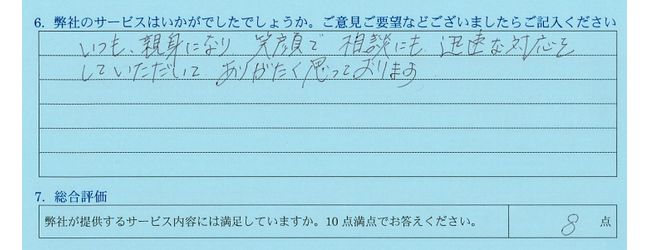 6. 弊社のサービスはいかがでしたでしょうか。ご意見ご要望などございましたらご記入ください
いつも、親身になり 笑顔で 相談にも 迅速な対応を
していただいて ありがたく思っております
7. 総合評価
弊社が提供するサービス内容には満足していますか。10点満点でお答えください。 8 点